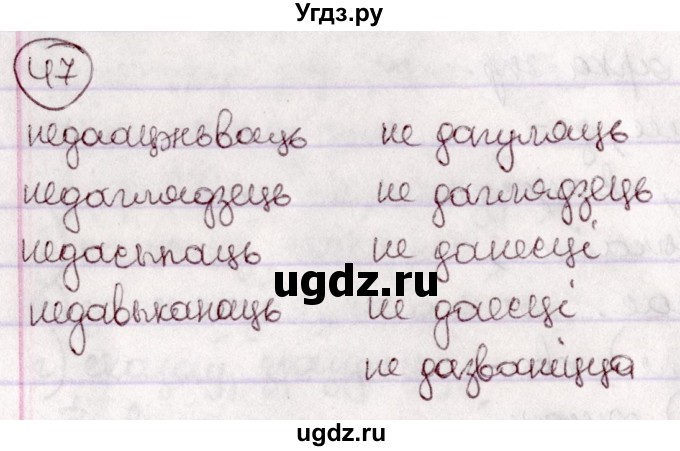 Угдз.ру
47
недаацэньваць не дагуляць
недаглядзець не даглядзець
недасыпаць не данесці
недавыканаць не даесці
не дазваніцца
ugdz.ru
ugdz.ru